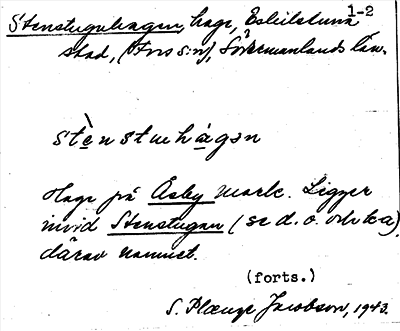 1-2
Stenstuguhagen, hage, Eskilstuna
stad, (Fors s:n), Södermanlands län.
stè̱nstuehá̱gən
Hage på Åsby mark. Ligger
invid Stenstugan (se d. o. och ka)
därav namnet.
(forts.)
S. Plænge Jacobson, 1943.